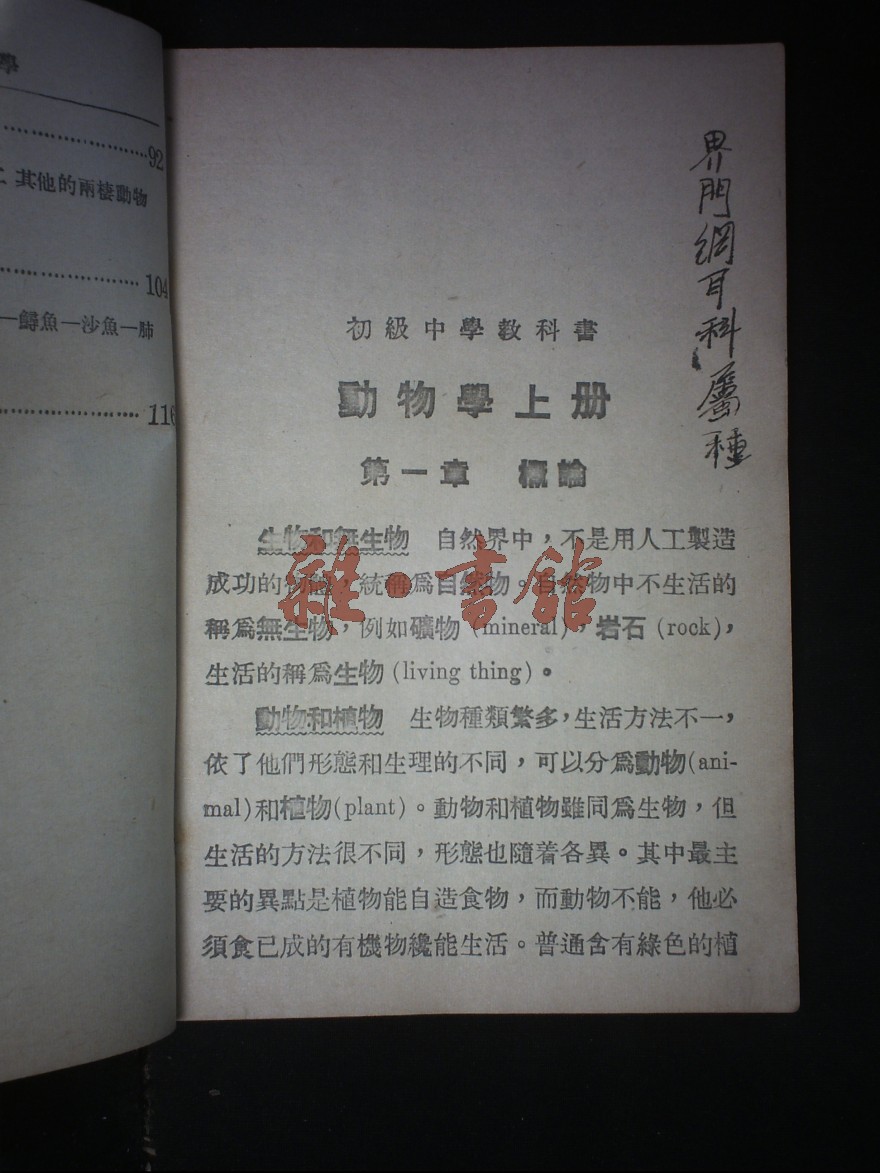 學
92
其他的兩棲動物
104
鱘魚—沙魚—肺
116
界門網目科屬種
初級中學教科書
動物學上册
第一章 概論
生物和無生物 自然界中，不是用人工製造
成功的物體，統稱爲自然物。自然物中不生活的
稱爲無生物，例如礦物 (mineral)，岩石 (rock)，
生活的稱爲生物 (living thing)。
動物和植物 生物種類繁多，生活方法不一，
依了他們形態和生理的不同，可以分爲動物 (ani-
mal) 和植物 (plant)。動物和植物雖同爲生物，但
生活的方法很不同，形態也隨着各異。其中最主
要的異點是植物能自造食物，而動物不能，他必
須食已成的有機物纔能生活。普通含有綠色的植
雜·書館